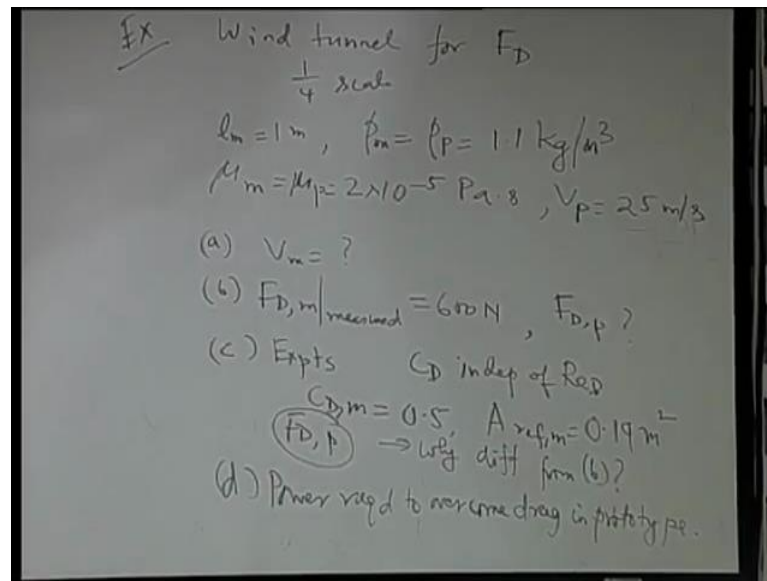 Ex Wind tunnel for F_D
1/4 scale
l_m = 1 m, ρ_m = ρ_p = 1.1 kg/m³
μ_m = μ_p = 2×10⁻⁵ Pa.s, V_p = 25 m/s
(a) V_m = ?
(b) F_D,m|measured = 600 N, F_D,p ?
(c) Expts C_D indep of Re_D
C_D,m = 0.5, A_ref,m = 0.19 m²
F_D,p → why diff from (b)?
(d) Power reqd to overcome drag in prototype.